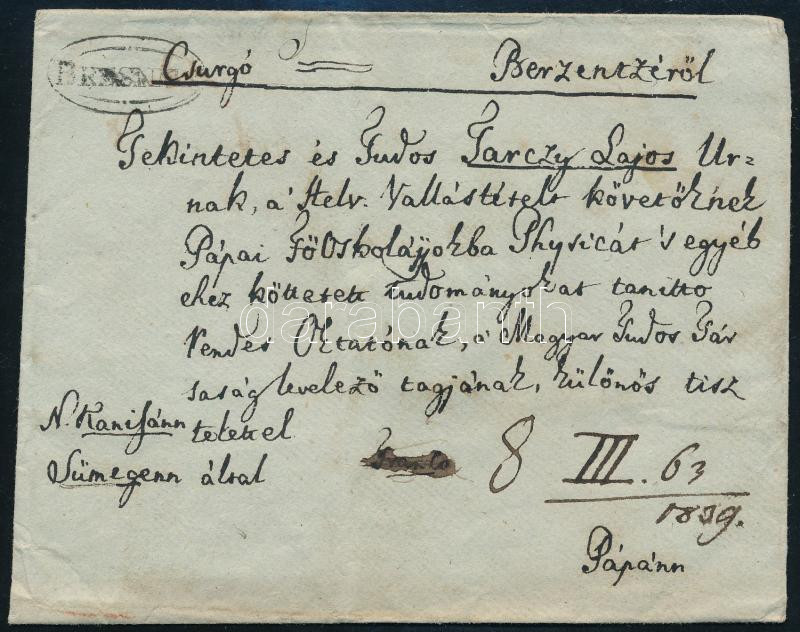 Csurgó Berzentzéröl
Tekintetes és Tudos Tarczy Lajos Ur=
nak, a' Helv. Vallástételt követöknek
Pápai FöOskolájokba Physicát 's egyéb
ehez köttetett tudományokat tanitto
rendes Oktatónak, a Magyar Tudos Tár
saság levelezö tagjának, különös tisz
N. Kanisánn telettel
Sümegenn által
8 III. 63
1839.
Pápánn
darabanth